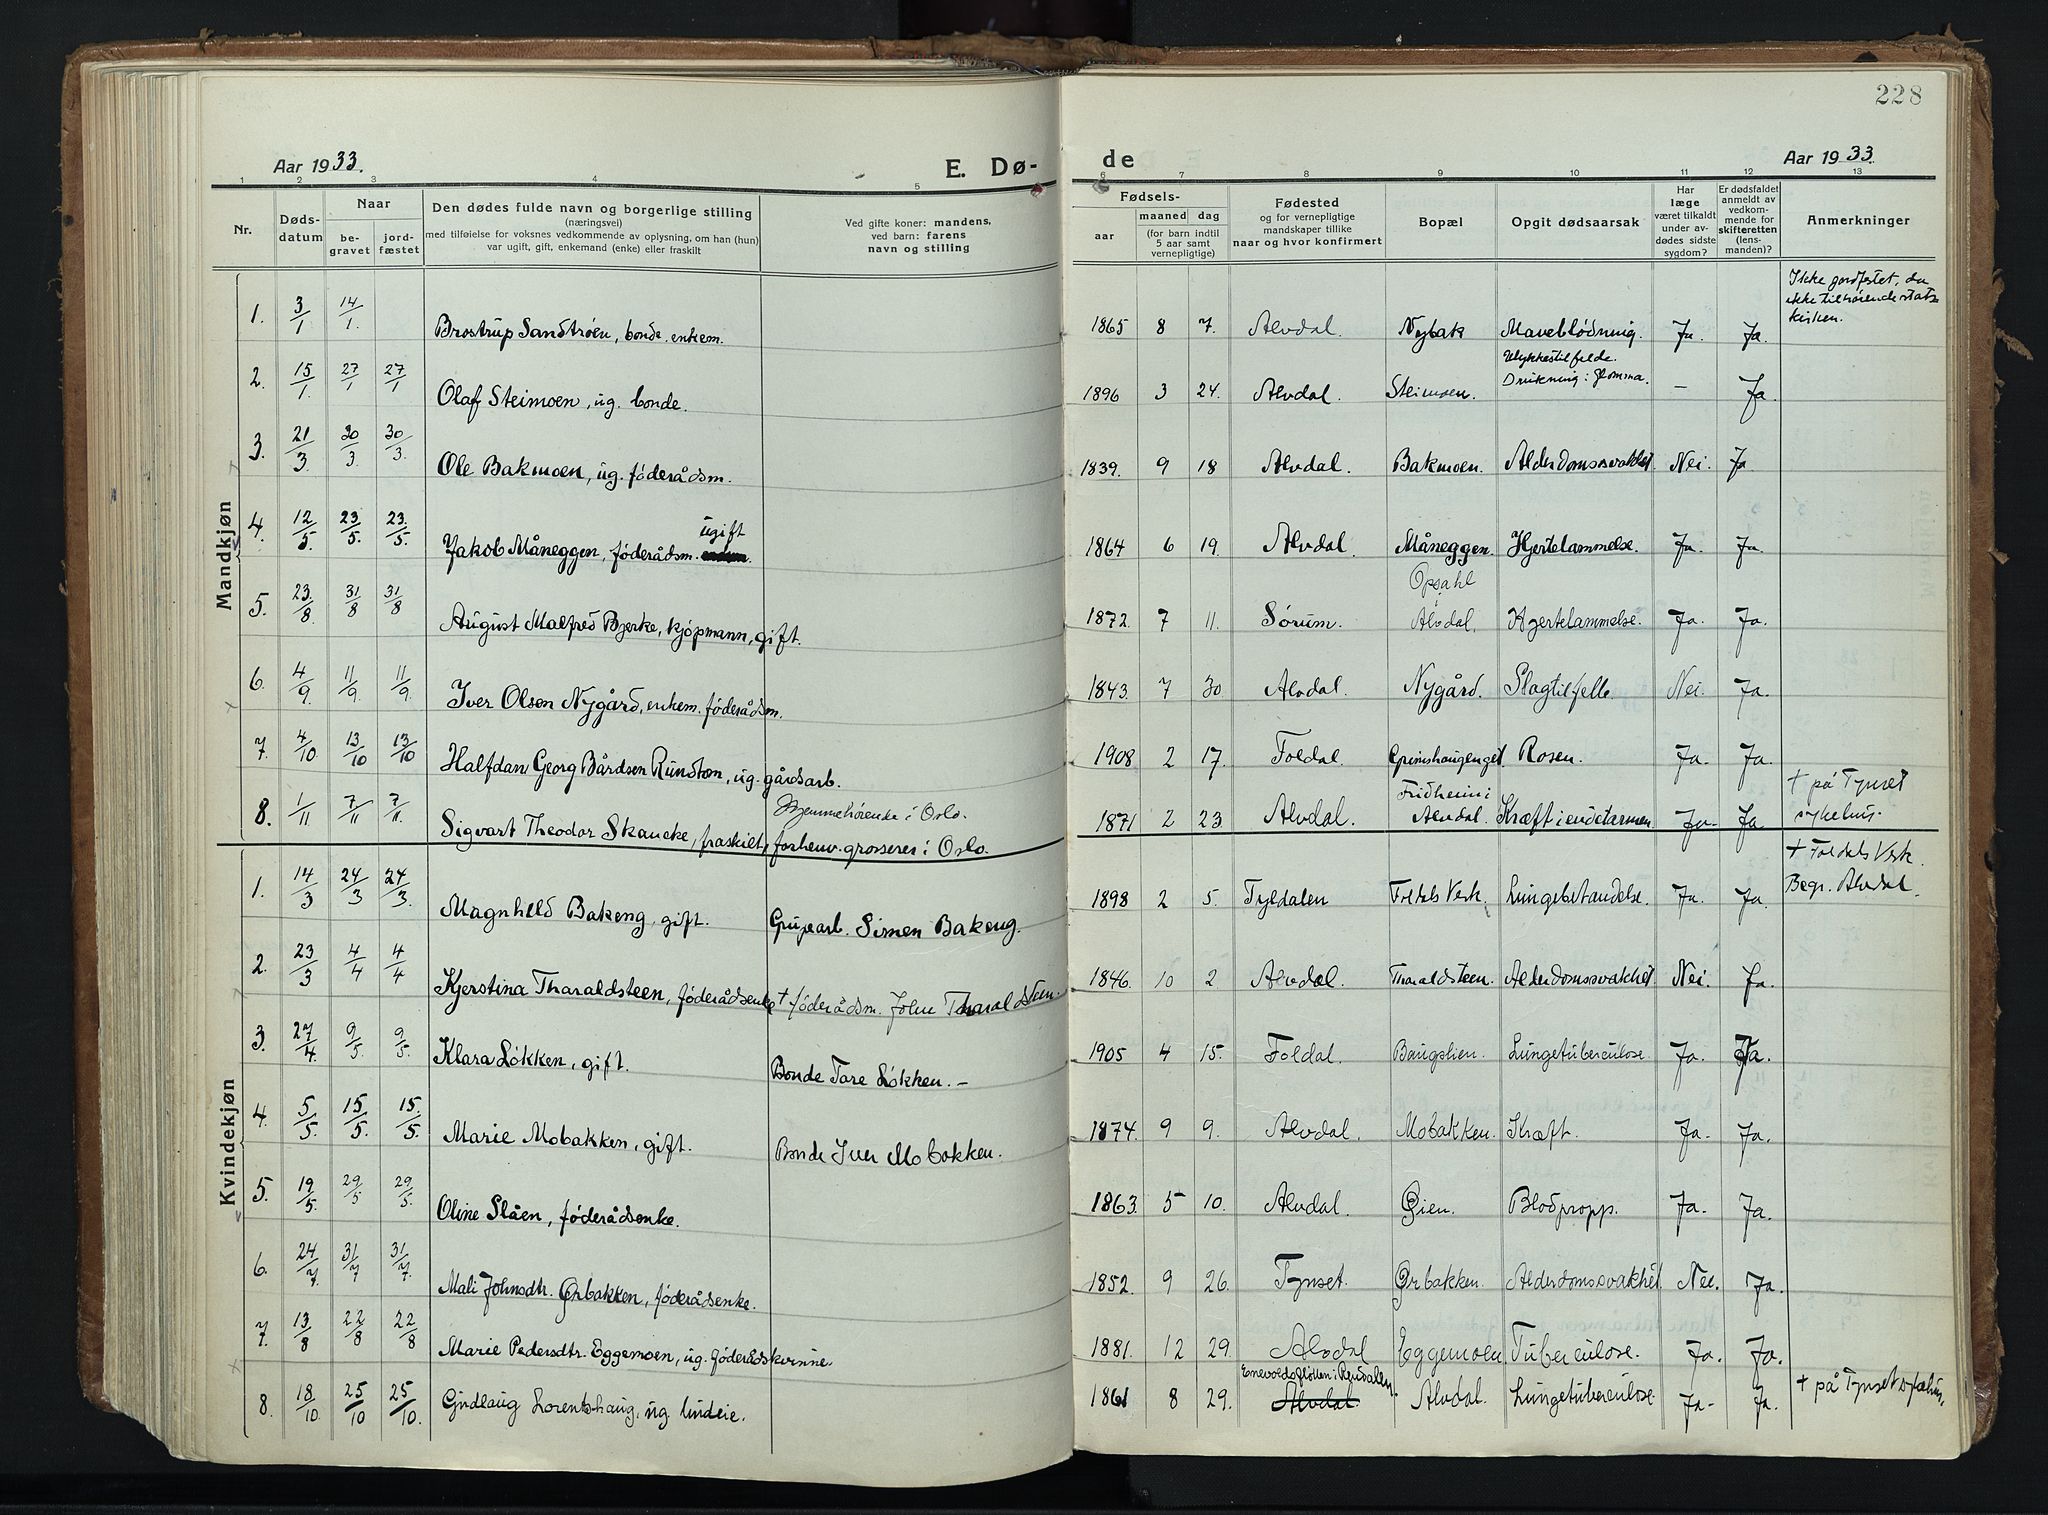 228
Aar 1933.
E. Dø-
de
Aar 1933.
1 2 3 4 5 6 7 8 9 10 11 12 13
Nr.
Døds-
datum
Naar
be-
gravet
jord-
fæstet
Den dødes fulde navn og borgerlige stilling
(næringsvei)
med tilføielse for voksnes vedkommende av oplysning, om han (hun)
var ugift, gift, enkemand (enke) eller fraskilt
Ved gifte koner: mandens,
ved barn: farens
navn og stilling
Fødsels-
aar
maaned
dag
(for barn indtil
5 aar samt
vernepligtige)
Fødested
og for vernepligtige
mandskaper tillike
naar og hvor konfirmert
Bopæl
Opgit dødsaarsak
Har
læge
været tilkaldt
under av-
dødes sidste
sygdom?
Er dødsfaldet
anmeldt av
vedkom-
mende for
skifteretten
(lens-
manden)?
Anmerkninger
Mandkjøn
1. 3/1 14/1 Brostrup Sandtrøen, bonde, enkem. 1865 8 7. Alvdal. Nybak Maveblødning. Ja. Ja. Ikke jordfestet, da
ikke tilhørende stats
kirken.
2. 15/1. 27/1 27/1 Olaf Steimoen, ug. bonde. 1896 3 24. Alvdal. Steimoen. Ulykkestilfelde.
Drukning i Glomma. — Ja.
3. 21/3. 30/3. 30/3. Ole Bakmoen, ug. føderådsm. 1839. 9 18 Alvdal. Bakmoen. Alderdomssvakhet Nei. Ja
4. 12/5 23/5. 23/5. Jakob Måneggen, føderådsm. ugift 1864 6 19. Alvdal. Måneggen. Hjertelammelse. Ja. Ja.
5. 23/8. 31/8 31/8 August Malfred Bjerke, kjøpmann, gift. 1872. 7 11. Sørum. Opsahl
i
Alvdal. Hjertelammelse. Ja. Ja.
6. 4/9. 11/9. 11/9. Iver Olsen Nygård, enkem. føderådsm. 1843. 7 30 Alvdal. Nygård. Slagtilfelle. Nei. Ja.
7. 4/10 13/10 13/10 Halfdan Georg Bårdsen Rundtom, ug. gårdsarb. 1908 2 17. Foldal. Grimshaugenget Rosen. Ja. Ja.
8. 1/11 7/11 7/11. Sigvart Theodor Skancke, fraskilt, forhenv. grosserer i Oslo. Hjemmehørende i Oslo. 1871 2 23. Alvdal. Fridheim i
Alvdal. Kræft i endetarmen. Ja. Ja + på Tynset
sykehus.
Kvindekjøn
1. 14/3 24/3 24/3. Magnhild Bakeng, gift. Grubearb. Simen Bakeng. 1898 2 5. Tyldalen Foldals Verk. Lungebetændelse. Ja. Ja. + Foldals Verk.
Begr. Alvdal.
2. 23/3 4/4 4/4 Kjerstina Tharaldsteen, føderådsenke + føderådsm. John Tharaldsteen. 1846. 10 2 Alvdal. Tharaldsteen. Alderdomssvakhet Nei. Ja.
3. 27/4 9/5. 9/5. Klara Løkken, gift. Bonde Tore Løkken. — 1905 4 15. Foldal. Baugslien. Lungetuberculose. Ja. Ja.
4. 5/5. 15/5. 15/5. Marie Mobakken, gift. Bonde Iver Mobakken. 1874. 9 9. Alvdal. Mobakken. Kræft. Ja. Ja.
5. 19/5. 29/5 29/5. Oline Slåen, føderådsenke. 1863. 5 10. Alvdal. Øien. Blodpropp. Ja. Ja.
6. 24/7. 31/7 31/7. Mali Johnsdtr. Ørbakken, føderådsenke. 1852. 9 26. Tynset. Ørbakken. Alderdomssvakhet Nei. Ja.
7. 13/8 22/8 22/8 Marie Pedersdtr. Eggemoen, ug. føderådskvinne. 1881. 12 29. Alvdal Eggemoen Tuberculose. Ja. Ja.
8. 18/10. 25/10 25/10. Gudlaug Lorentshaug, ug. 1861 8 29. Alvdal Alvdal. Lungetuberculose. Ja. Ja. + på Tynset sykehus.